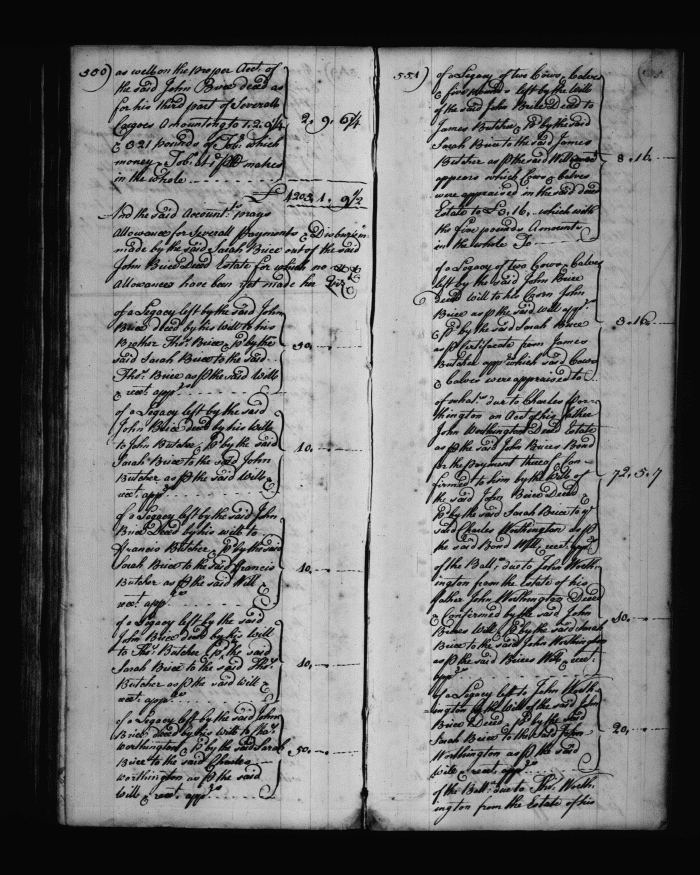 550) as well on the Proper Acct. of
the said John Brice decd. as
for his third part of Severall
Cargoes Amounting to
& 321 pounds of Tob. which
money & Tob. at makes
in the whole
2. 9. 6¾
£ 4203. 1. 9½
And the said Accountt. prays
Allowance for Severall payments & Disbursmts.
made by the said Sarah Brice out of the said
John Brice Decd. Estate for which no
Allowances have been yet made her Viz.
of a Legacy left by the said John
Brice decd. by his Will to his
Brother Thos. Brice & pd. by the
said Sarah Brice to the said
Thos. Brice as p the said Will
& rect. apprs.
30. . .
of a Legacy left by the said
John Brice decd. by his Will
to John Butcher & pd. by the said
Sarah Brice to the said John
Butcher as p the said Will &
rect. apprs.
10. . .
of a Legacy left by the said John
Brice Decd. by his will to
Francis Butcher & pd. by the said
Sarah Brice to the said Francis
Butcher as p the said Will &
rect. apprs.
10. . .
of a Legacy left by the said
John Brice decd. by his Will
to Thos. Butcher & pd. by the said
Sarah Brice to the said Thos.
Butcher as p the said Will &
rect. apprs.
10. . .
of a Legacy left by the said John
Brice decd. by his Will to Chas.
Worthington & pd. by the said Sarah
Brice to the said Charles
Worthington as p the said
Will & rect. apprs.
50. . .
551) of a Legacy of two Cows & Calves
& five pounds left by the Will
of the said John Brice Decd. to
James Butcher & pd. by the said
Sarah Brice to the said James
Butcher as p the said Will
appears which Cows & Calves
were appraised in the said decd.
Estate to £3. 16. which with
the five pounds Amounts
in the whole To
8. 16.
of a Legacy of two Cows & Calves
left by the said John Brice
decd. Will to his Cozn. John
Brice as p the said will appr.
& pd. by the said Sarah Brice
as p Certificate from James
Butcher appr. which said Cows
& Calves were appraised to
3. 16.
of what due to Charles Wor-
thington on Acct. of his father
John Worthington Decd. Estate
as p the said John Brices Bond
for the payment thereof Con-
firmed to him by the Will of
the said John Brice Decd.
& pd. by the said Sarah Brice to ye
said Charles Worthington as p
the said Bond Will & rect. appr.
72. 5. 7
of the Ball. due to John Worth-
ington from the Estate of his
father John Worthington Decd.
& Confirmed by the said John
Brices Will & pd. by the said Sarah
Brice to the said John Worthington
as p the said Brices Will & rect.
apprs.
10. . .
of a Legacy left to John Worth-
ington by the Will of the said John
Brice Decd. & pd. by the said
Sarah Brice to the said John
Worthington as p the said
will & rect. apprs.
20. . .
of the Ball. due to Thos. Worth-
ington from the Estate of his